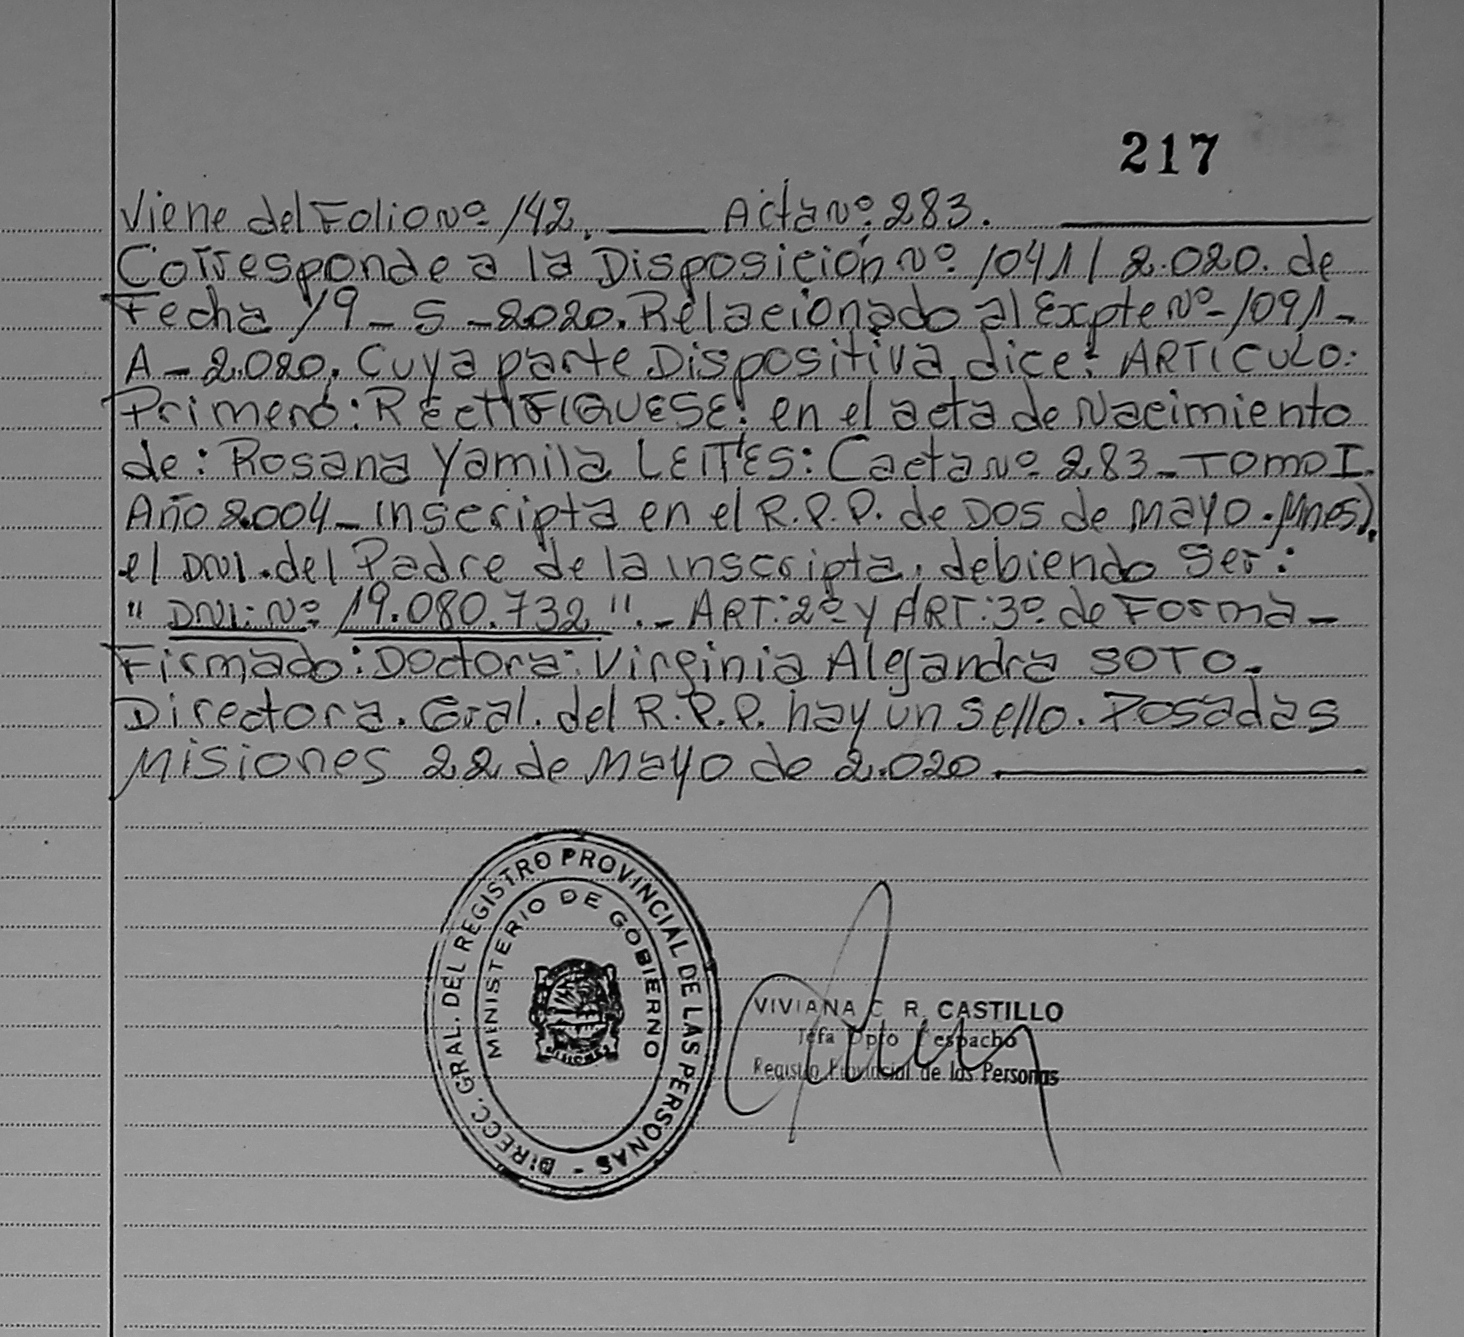 217
Viene del Folio Nº 142. Acta Nº 283.
Corresponde a la Disposición Nº 1041/2.020. de
Fecha 19-5-2020. Relacionado al Expte Nº-1091-
A-2.020. Cuya parte Dispositiva dice: ARTÍCULO:
Primero: RECTIFIQUESE: en el acta de Nacimiento
de: Rosana Yamila LEITES: (acta Nº 283-TOMO I.
Año 2.004-inscripta en el R.P.P. de DOS de MAYO.Mnes).
el DNI.del Padre de la inscripta, debiendo Ser:
"DNI: Nº 19.080.732".-ART:2º y ART:3º de Forma-
Firmado: Doctora: Virginia Alejandra SOTO.
Directora. Gral. del R.P.P. hay un sello. Posadas
Misiones 22 de Mayo de 2.020
DIRECC. GRAL. DEL REGISTRO PROVINCIAL DE LAS PERSONAS -
MINISTERIO DE GOBIERNO
MISIONES
VIVIANA C R. CASTILLO
Jefa Dpto Despacho
Registro Provincial de las Personas